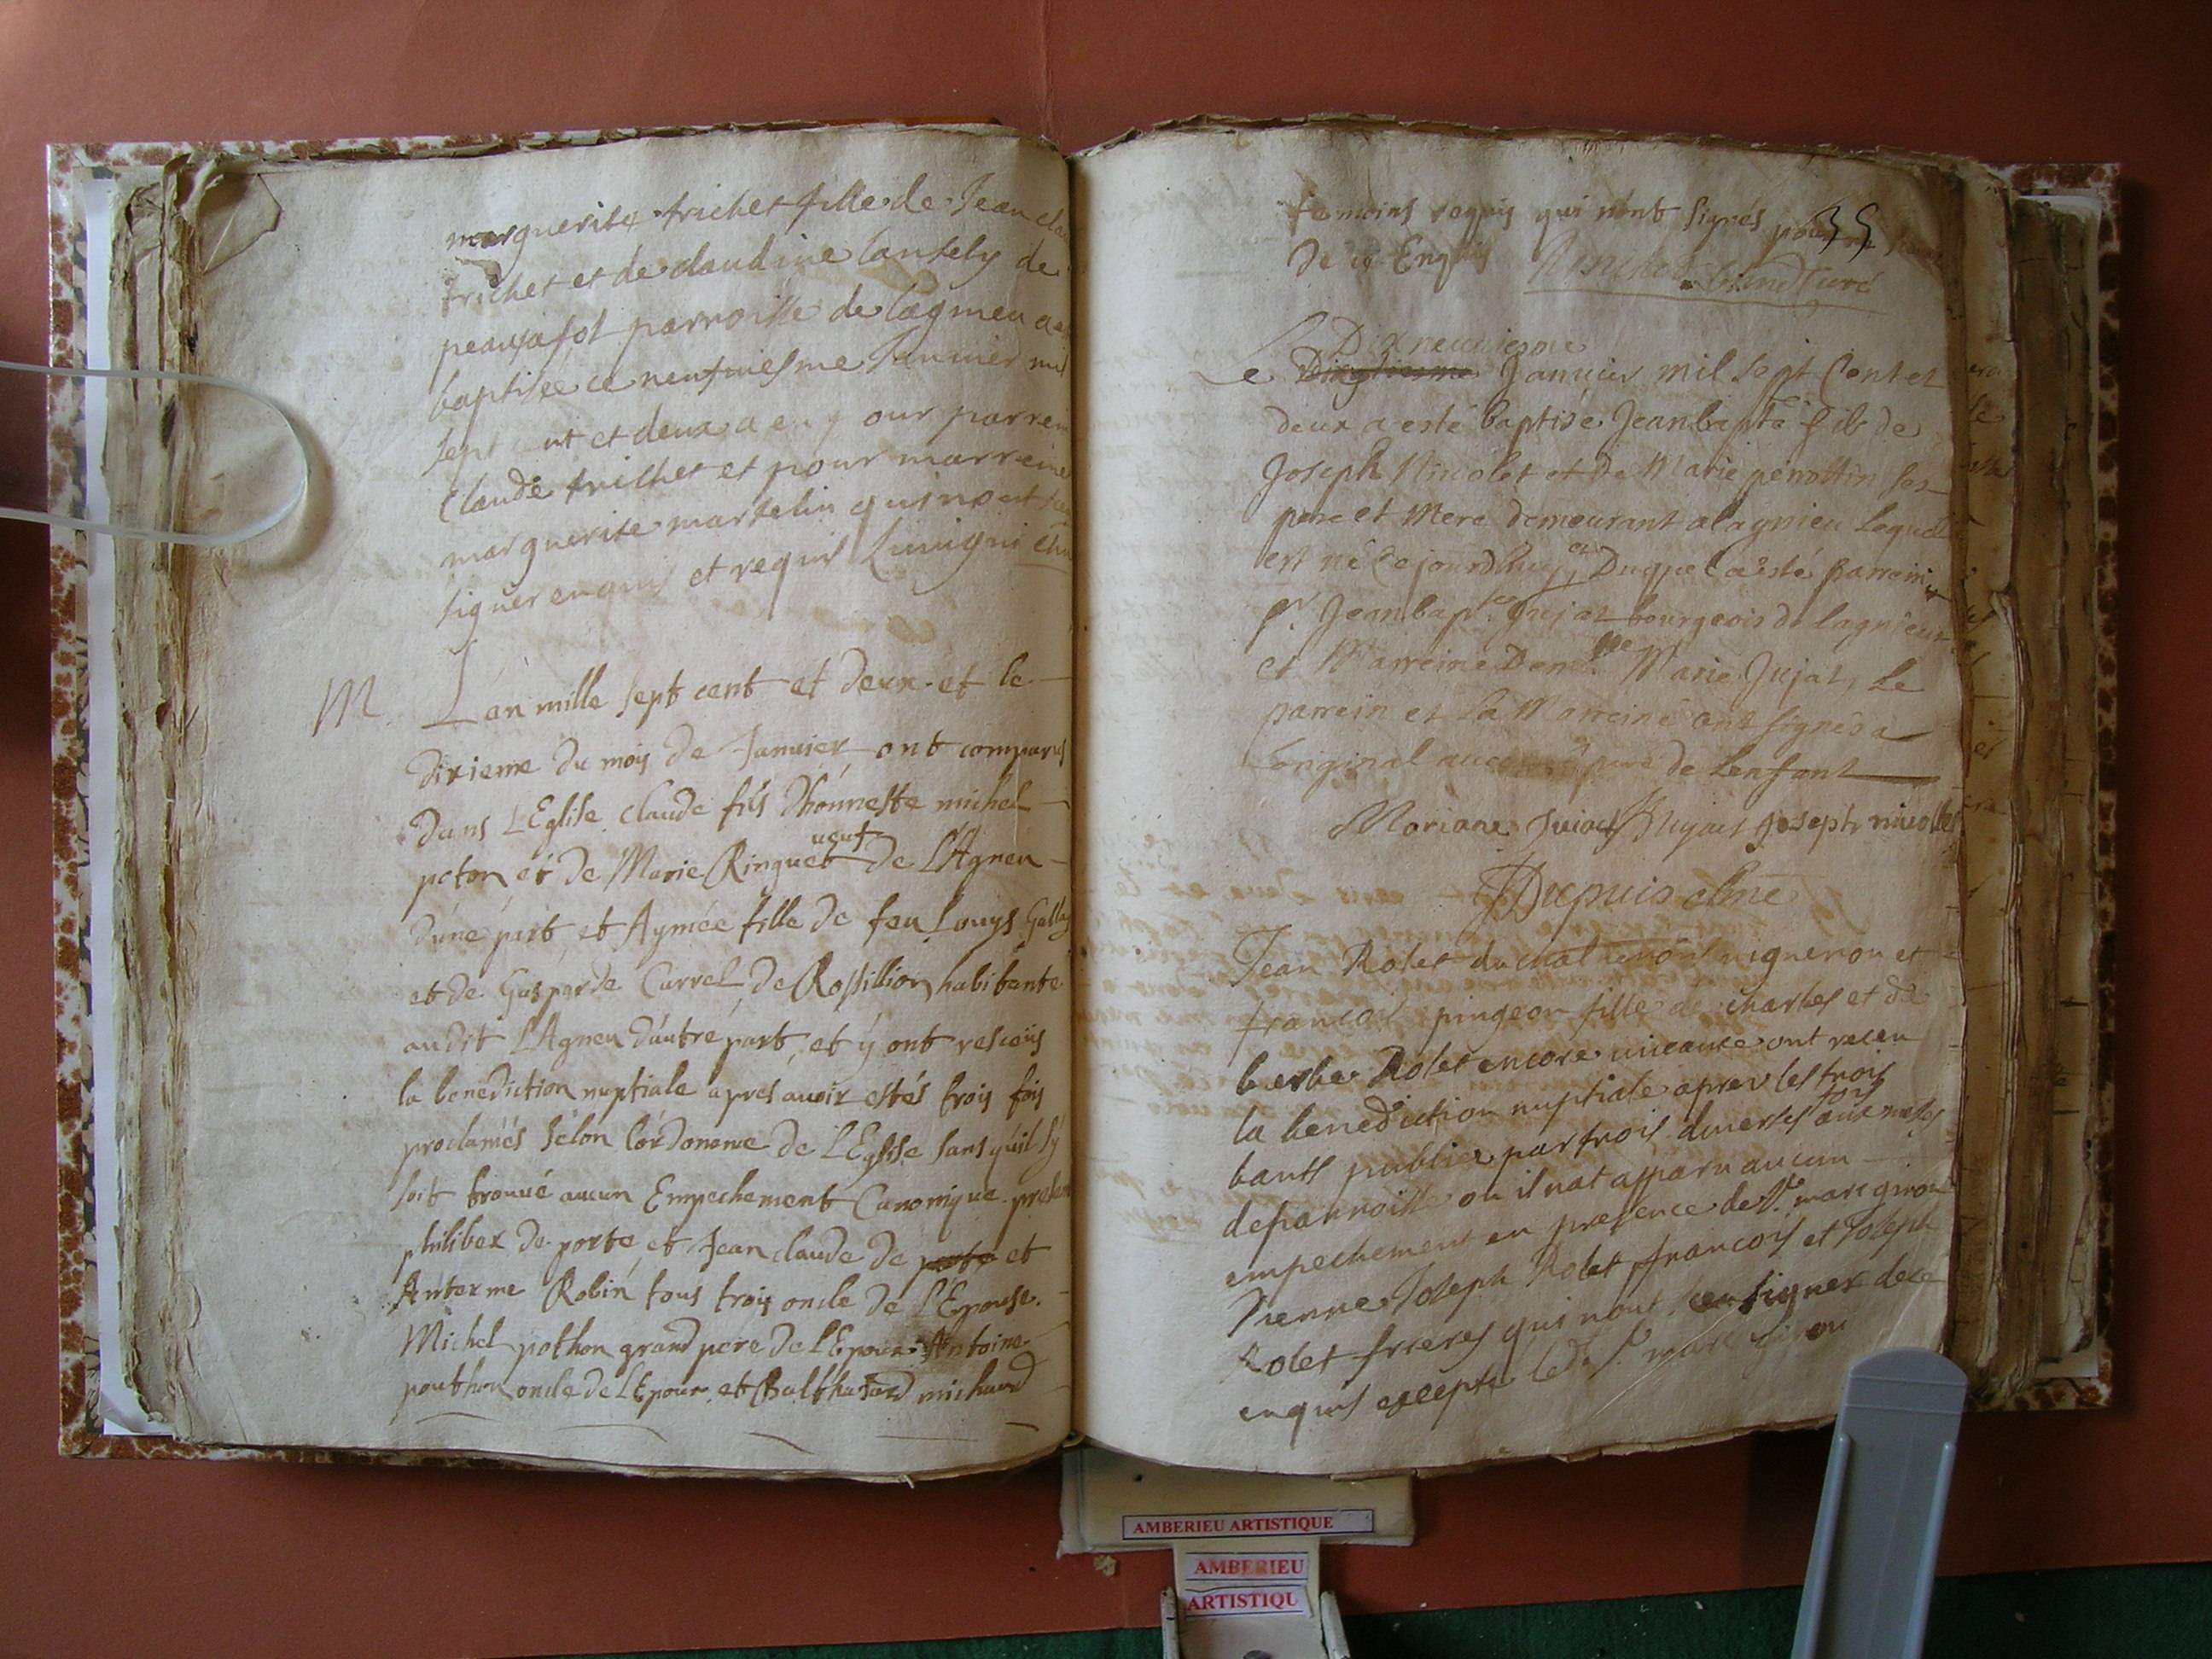 marguerite trichet fille de Jean
trichet et de claudine lantely de
peausafol parroisse de lagnieu a
baptisée ce neufuiesme Januier mil
sept cent et deux a eu pour parrein
Claude trichet et pour marreine
marguerite martelin qui nont
signer enquis et requis
M. Lan mille sept cent et deux et le
dixieme du mois de Januier ont comparus
dans LEglise claude fils dhonneste michel
poton et de Marie Ringuet ueuf de LAgneu
dune part et Aymée fille de feu Louys
et de Gasparde Currel de Rossillion habitante
audit LAgneu dautre part, et y ont resceus
la benediction nuptiale apres auoir estés trois fois
proclamés selon lordonance de LEglise sans quil sy
soit trouué aucun Empechement Canonique
philibex de porte et Jean claude de porte et
Anterme Robin tous trois oncle de LEpouse.
Michel pothon grand pere de LEpoux Antoine
pouthon oncle de LEpoux et Balthasard michaud
temoins requis qui nont signés pour 35
de ce Enquis
Dixneuuiesme
Le Januier mil sept Cent et
deux a esté baptisé Jean bapte fils de
Joseph Nicolet et de Marie perrottin ses
pere et Mere demeurant a lagnieu lequel
est né cejourdhuy et Duquel a esté parrein
sr. Jean bapte. Jujat bourgeois de lagnieu
et Marreine Demlle Marie Jujat, Le
parrein et La Marreine ont signés a
Loriginal auec le pere de Lenfant
Mariane Juiat Jujat Joseph nicollet
Dupuis
Jean Rolet du vigneron et
francoise pingeon fille de charles et de
Rolet encore viuante ont receu
la benediction nuptiale apres les trois
bants publiez par trois diuerses fois aux
de parroisse ou il nat apparu aucun
empechement en presence de Sr. marc
pierre Joseph Rolet francois et Joseph
Rolet freres qui nont sceu signer de ce
enquis excepté led. Sr. marc
AMBERIEU ARTISTIQUE
AMBERIEU
ARTISTIQU